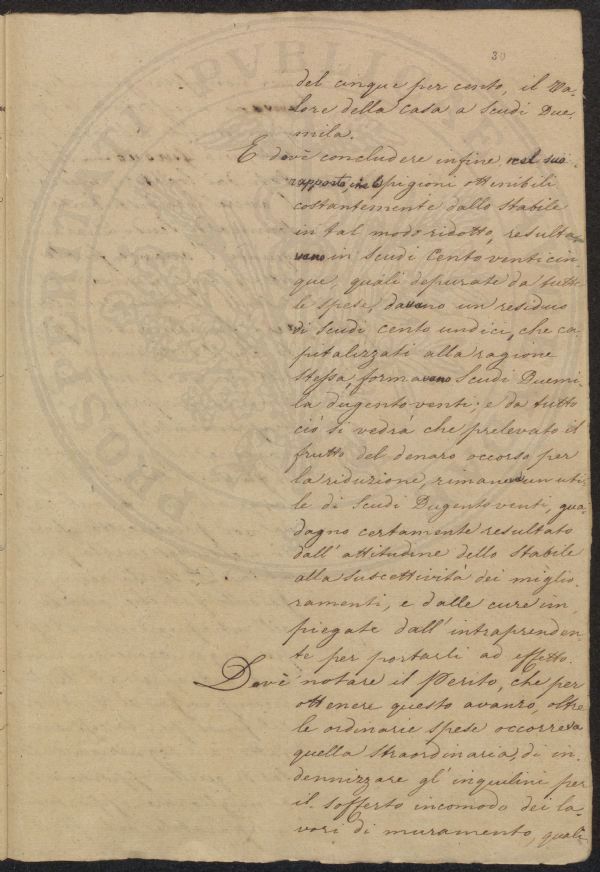 30
del cinque per cento, il Va-
lore della casa a Scudi Due-
mila.
E dovè concludere infine nel suo
rapporto, che le pigioni ottenibili
costantemente dallo Stabile
in tal modo ridotto, resulta-
vano in Scudi Cento venticin
que, quali depurate da tutte
le spese, davano un residuo
di Scudi cento undici, che ca
pitalizzati alla ragione
stessa, formavano Scudi Duemi
la dugento venti; e da tutto
ciò si vedrà che prelevato il
frutto del denaro occorso per
la riduzione, rimaneva un uti-
le di Scudi Dugento venti, gua
dagno certamente resultato
dall'attitudine dello Stabile
alla suscettività dei miglio
ramenti, e dalle cure im
piegate dall'intraprenden-
te per portarli ad effetto.
Dovè notare il Perito, che per
ottenere questo avanzo, oltre
le ordinarie spese occorreva
quella straordinaria, di in-
dennizzare gl'inquilini per
il sofferto incomodo dei la-
vori di muramento, quali